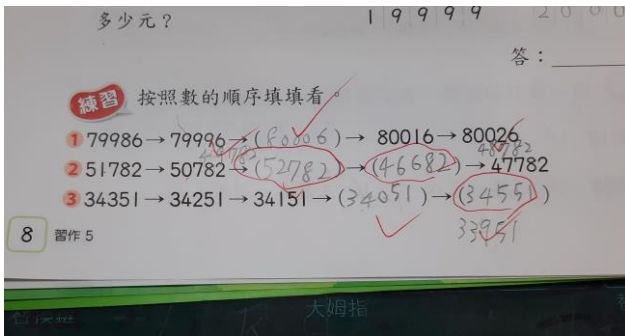 多少元？
19999 2000
答：
練習 按照數的順序填填看。
1 79986→79996→(80006)→ 80016→80026
49782 48782
2 51782→50782→(52782)→(46682)→47782
3 34351→34251→34151→(34051)→(34551)
33951
8 習作5
大姆指